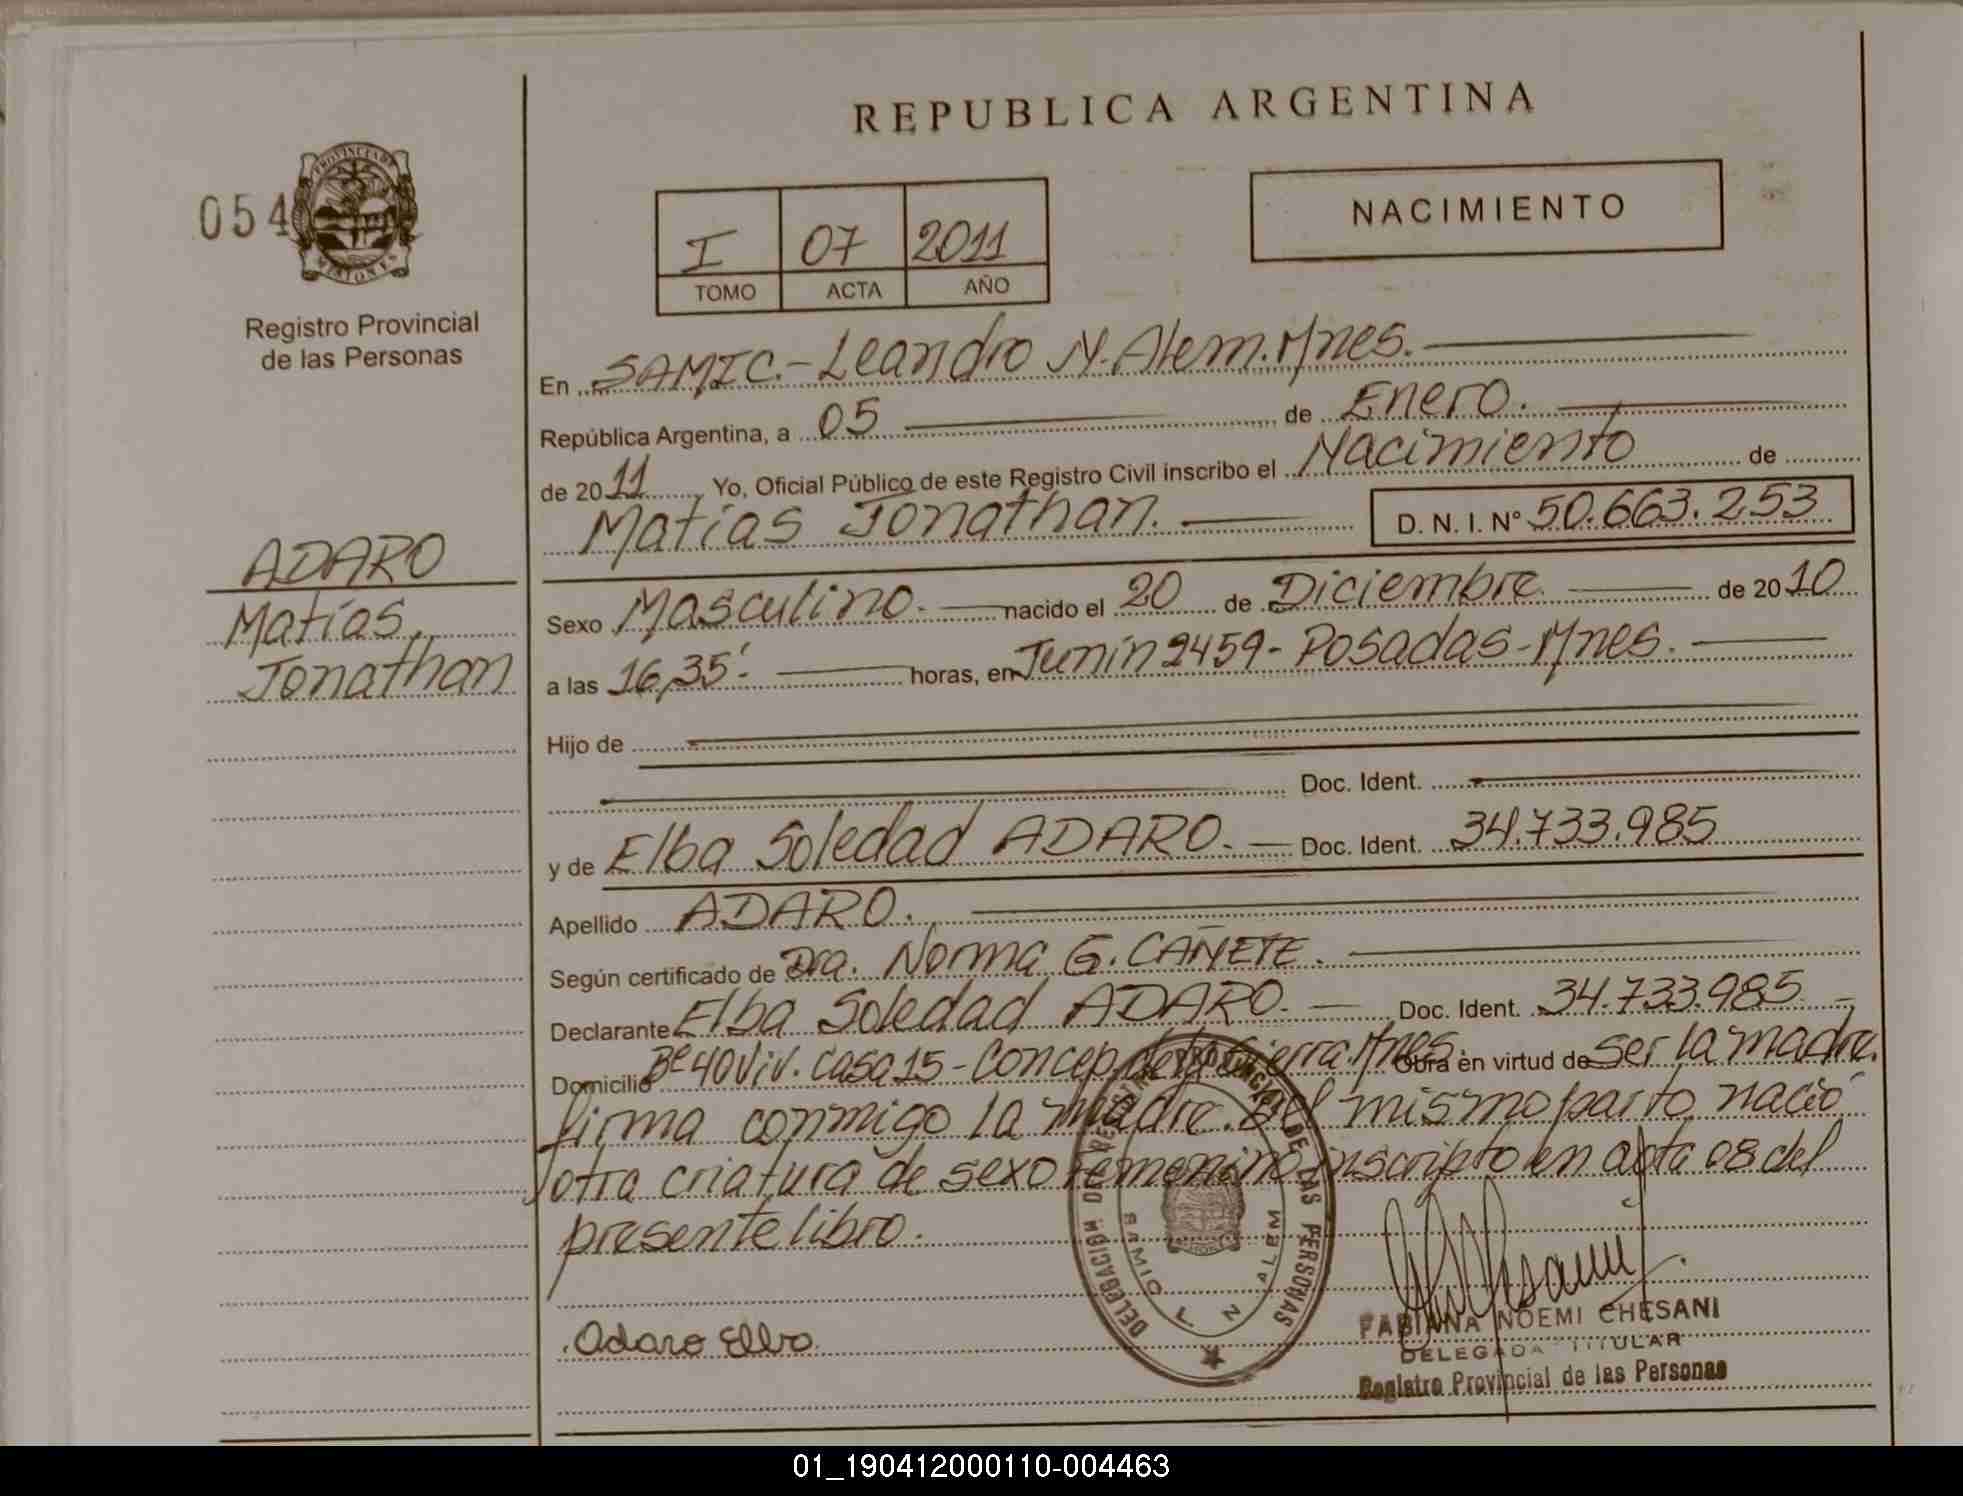 REPUBLICA ARGENTINA
054
PROVINCIA DE MISIONES
Registro Provincial
de las Personas
I 07 2011
TOMO ACTA AÑO
NACIMIENTO
En SAMIC.- Leandro N. Alem. Mnes.
República Argentina, a 05 de Enero.
de 2011, Yo, Oficial Público de este Registro Civil inscribo el Nacimiento de
Matías Jonathan. D. N. I. Nº 50.663.253
ADARO
Matías,
Jonathan
Sexo Masculino. nacido el 20 de Diciembre de 2010
a las 16,35'. horas, en Junín 2459 - Posadas - Mnes.
Hijo de
Doc. Ident.
y de Elba Soledad ADARO. Doc. Ident. 34.733.985
Apellido ADARO.
Según certificado de Dra. Norma G. CAÑETE.
Declarante Elba Soledad ADARO. Doc. Ident. 34.733.985
Domicilio Bº 40 Viv. Casa 15 - Concep. de la Sierra. Mnes Obra en virtud de ser la madre.
firma conmigo la madre. Del mismo parto nació
otra criatura de sexo femenino inscripto en acta 08 del
presente libro.
DELEGACION DEL REGISTRO PROVINCIAL DE LAS PERSONAS
SAMIC L N ALEM
Adaro Elba
FABIANA NOEMI CHESANI
DELEGADA TITULAR
Registro Provincial de las Personas
01_190412000110-004463